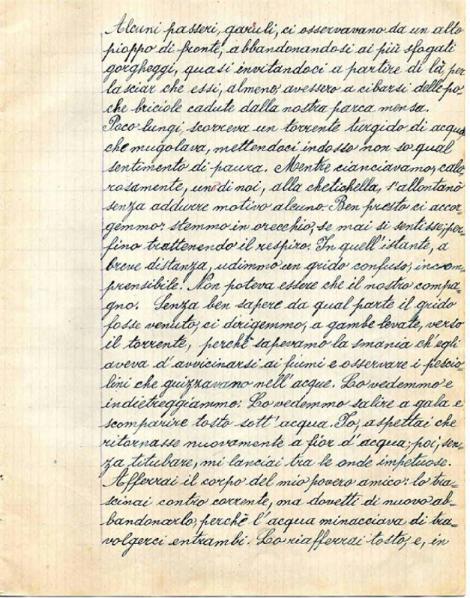 Alcuni passeri, garuli, ci osservavano da un alto
pioppo di fronte, abbandonandosi ai più sfogati
gorgheggi, quasi invitandoci a partire di là, per
lasciar che essi, almeno, avessero a cibarsi delle po
che briciole cadute dalla nostra parca mensa.
Poco lungi, scorreva un torrente turgido di acqua
che mugolava, mettendoci indosso non so qual
sentimento di paura. Mentre cianciavamo, calo
rosamente, uno di noi, alla chetichella, s'allontanò
senza addurre motivo alcuno. Ben presto ci accor
gemmo: stemmo in orecchio, se mai si sentisse, per
fino trattenendo il respiro. In quell'istante, a
breve distanza, udimmo un grido confuso, incom
prensibile. Non poteva essere che il nostro compa
gno. Senza ben sapere da qual parte il grido
fosse venuto, ci dirigemmo, a gambe levate, verso
il torrente, perchè sapevamo la smania ch'egli
aveva d'avvicinarsi ai fiumi e osservare i pescio
lini che guizzavano nell'acque. Lo vedemmo e
indietreggiammo: Lo vedemmo salire a gala e
scomparire tosto sott'acqua. Io, aspettai che
ritornasse nuovamente a fior d'acqua; poi, sen
za titubare, mi lanciai tra le onde impetuose.
Afferrai il corpo del mio povero amico: lo tra
scinai contro corrente, ma dovetti di nuovo ab
bandonarlo, perchè l'acqua minacciava di tra
volgerci entrambi. Lo riafferrai tosto, e, in